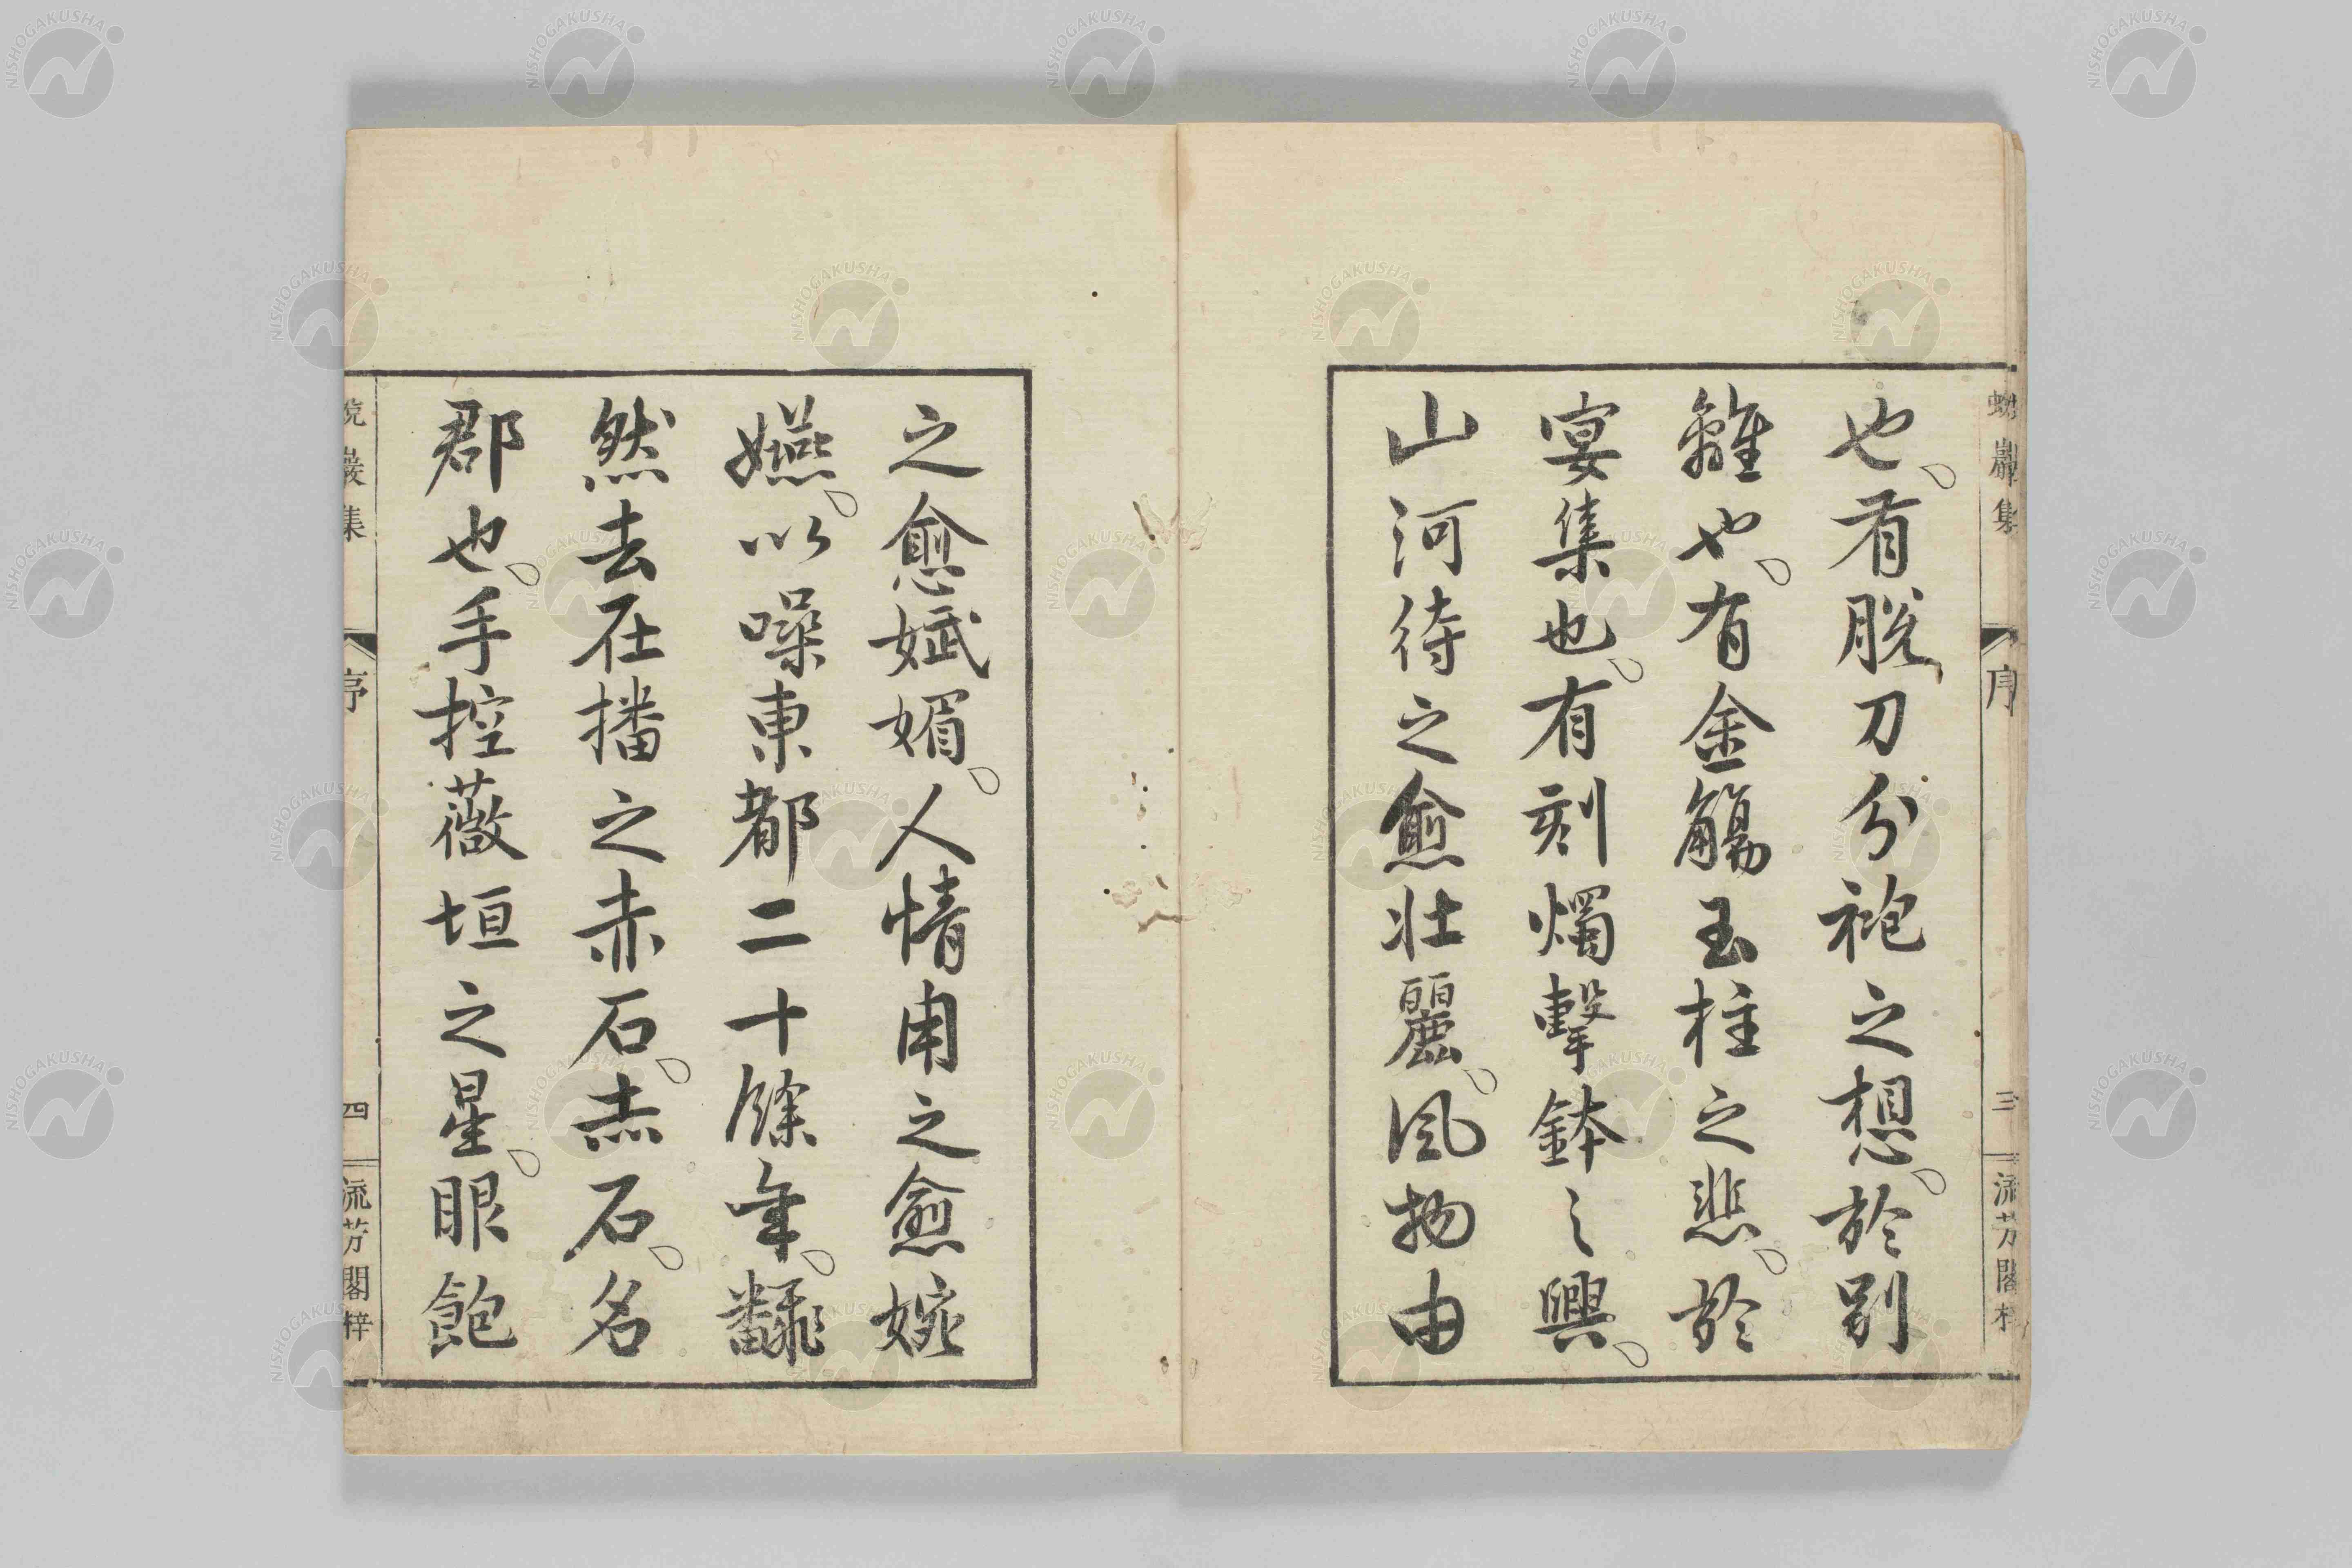 也。有脫刀分袍之想。於別
離也。有金觴玉柱之悲。於
宴集也。有刻燭擊鉢之興。
山河待之愈壯麗。風物由
之愈娬媚。人情用之愈婉
嬿。以噪東都二十餘年。飜
然去在播之赤石。赤石。名
郡也。手控薇垣之星。眼飽
蛻巖集
序
三
流芳閣梓
蛻巖集
序
四
流芳閣梓
NISHOGAKUSHA